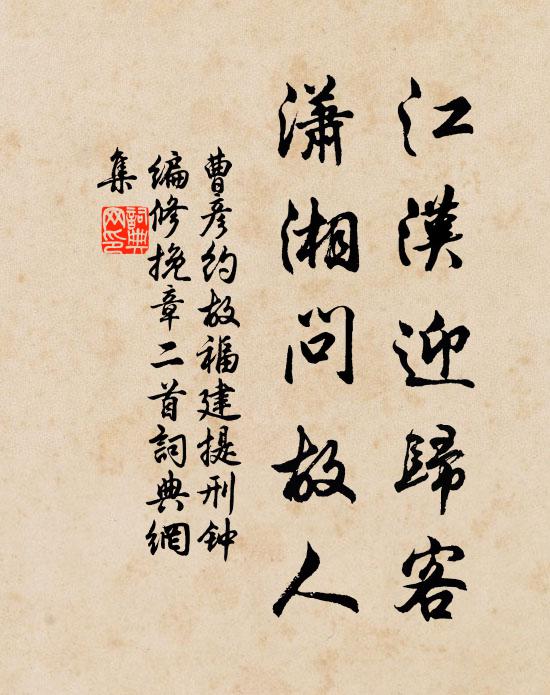 江漢迎歸客
瀟湘問故人
曹彥約故福建提刑钟
編修挽章二首詞典網
集
詞典网印